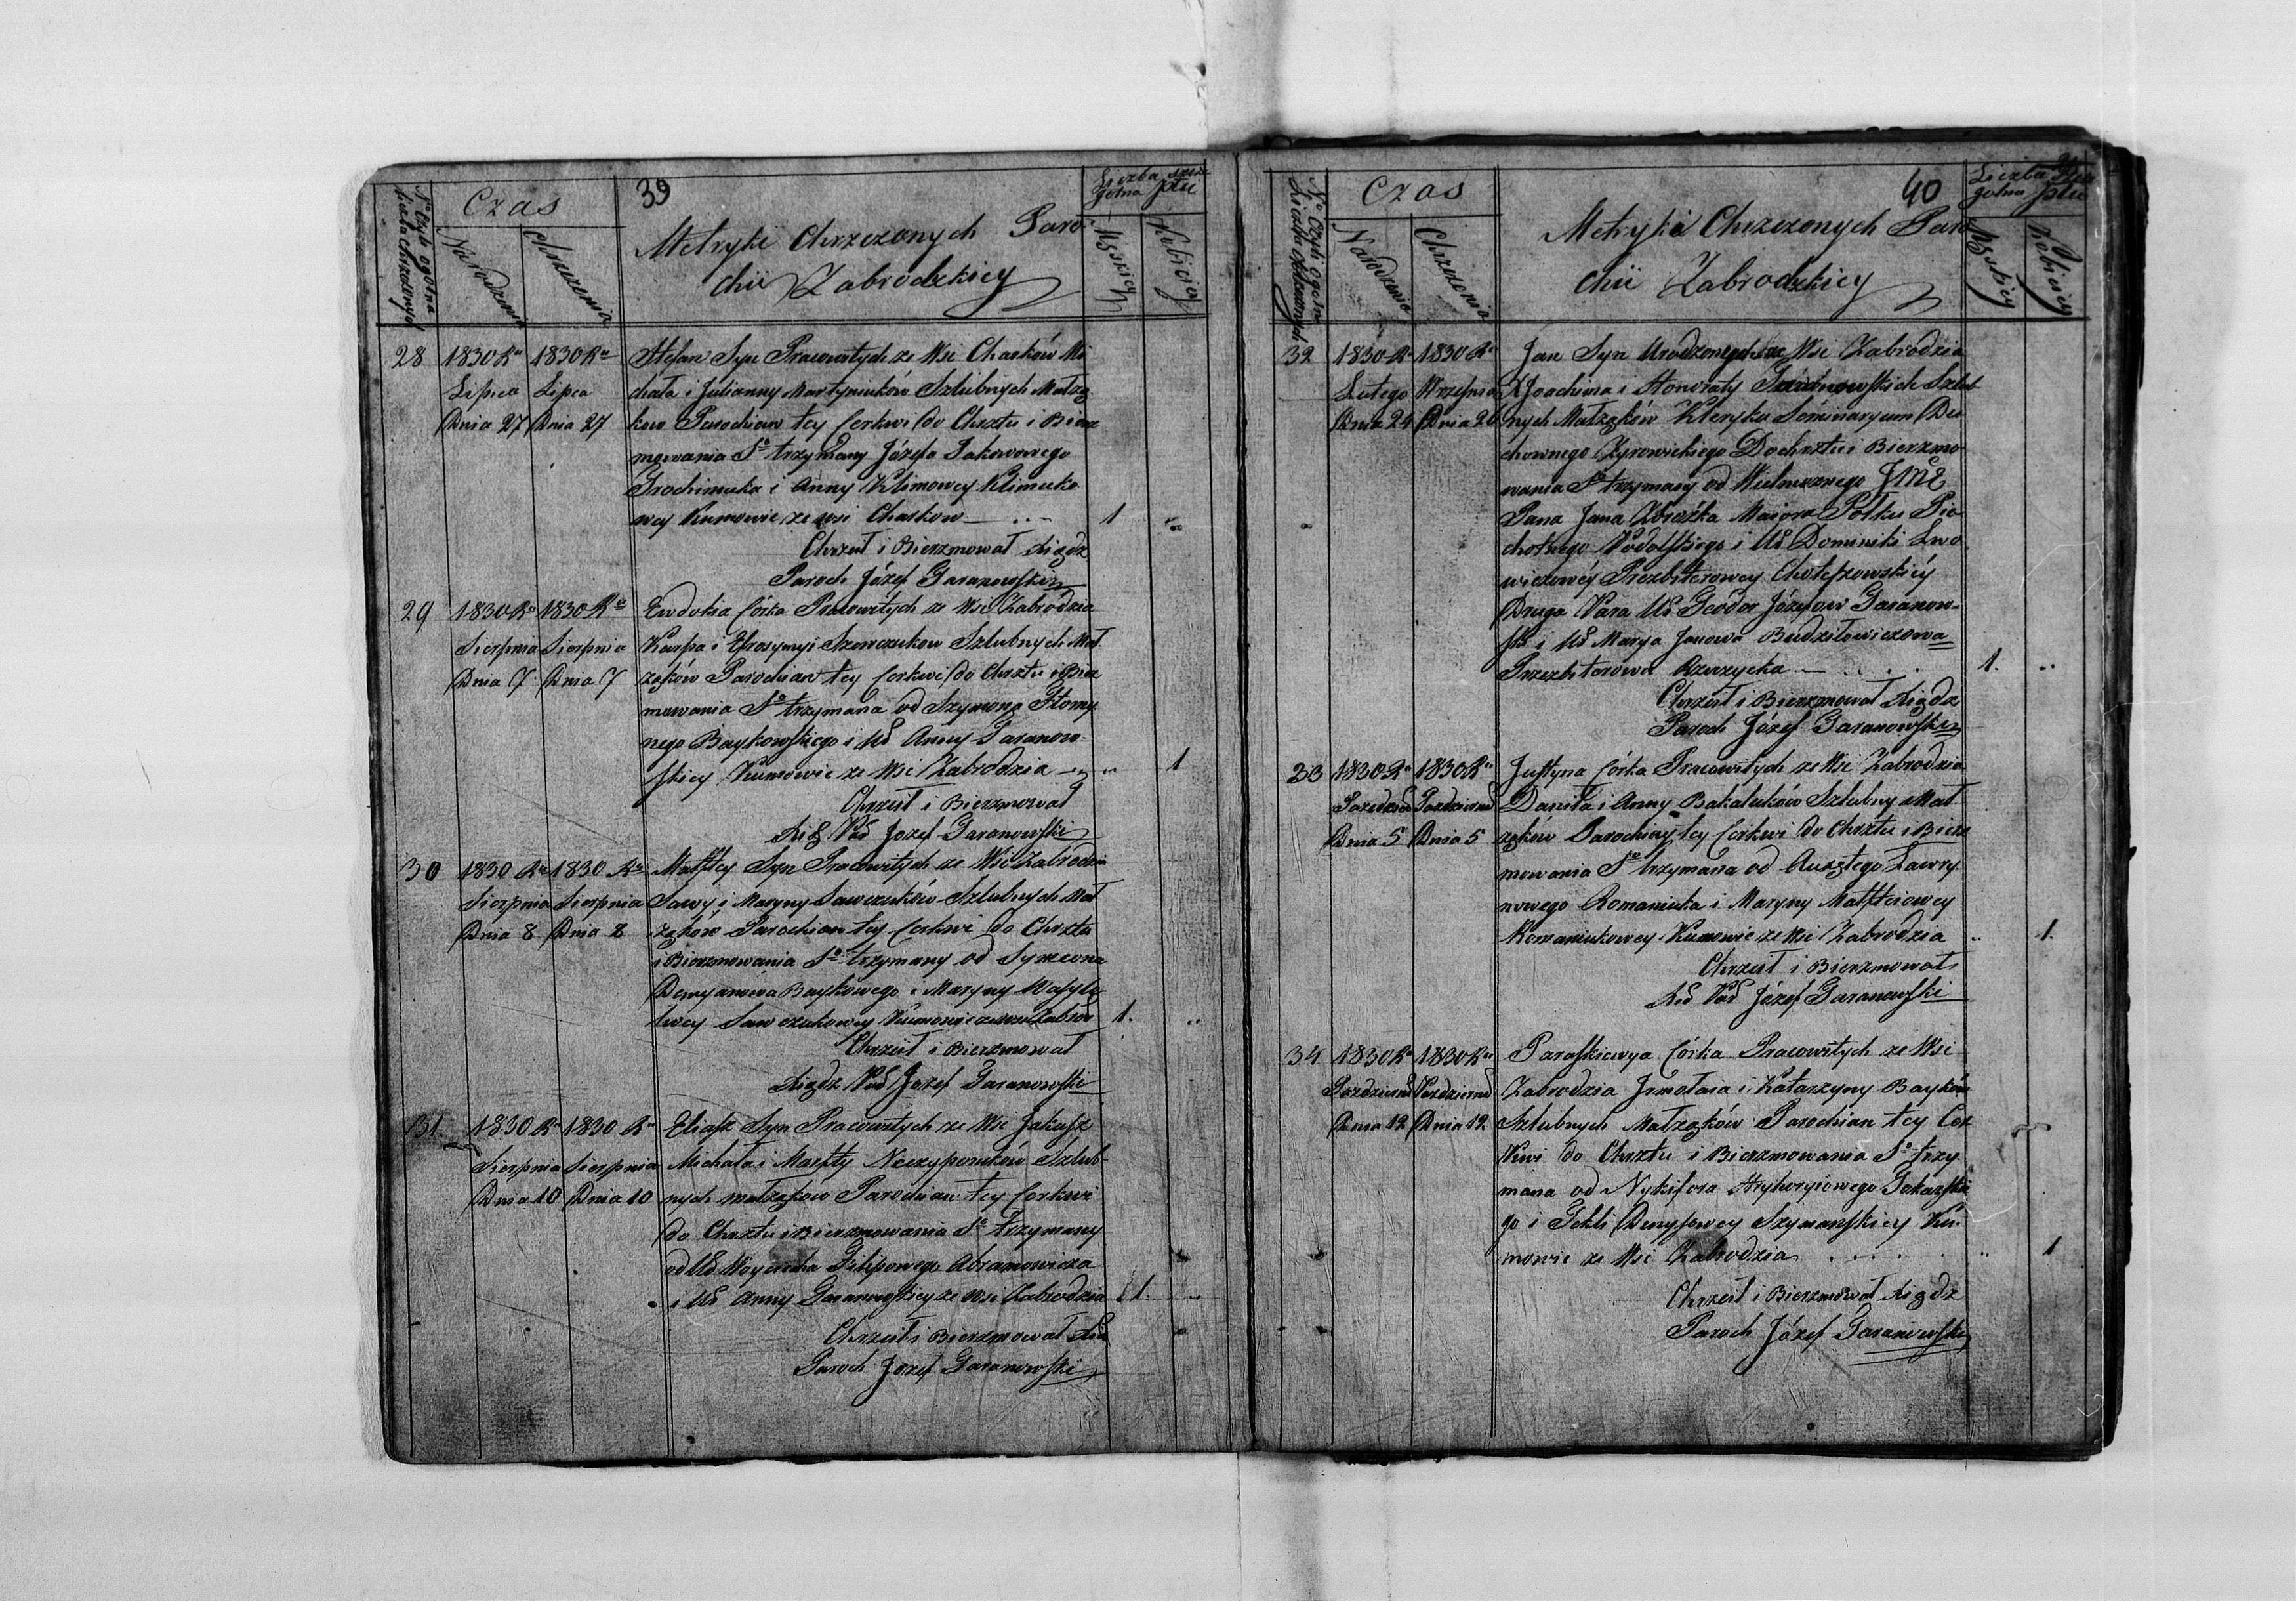 39
Nº Czyli ogolna Liczba Chrzczonych
Czas
Narodzenia
Chrzczenia
Metryki Chrzczonych Paro
chii Zabrodzkiey
Liczba szcze
golna płci
Męskiey
Kobiecey
28
1830 Rº 1830 Rº
Lipca Lipca
Dnia 27 Dnia 27
Stefan Syn Pracowitych ze Wsi Charków Mi
chała i Julianny Martyniuków Szlubnych Małżą
kow Parochian tey Cerkwi do Chrztu i Bierz
mowania Sº trzymany Józefa Jakowowego
Trochimuka i Anny Klimowey Klimuko
wey Kumowie ze wsi Charkow
1 "
Chrzcił i Bierzmował Xiądz
Paroch Józef Taranowski
29
1830 Rº 1830 Rº
Sierpnia Sierpnia
Dnia 7 Dnia 7
Ewdokia Córka Pracowitych ze Wsi Zabrodzia
Karpa i Efrozynyi Szewczuków Szlubnych Mał
żąków Parochian tey Cerkwi do Chrztu i Bierz
mowania Sº trzymana od Szymona
nego Baykowskiego i Wº Anny Taranow-
skiey Kumowie ze Wsi Zabrodzia
" 1
Chrzcił i Bierzmował
Józef Taranowski
30
1830 Rº 1830 Rº
Sierpnia Sierpnia
Dnia 8 Dnia 8
Matftey Syn Pracowitych ze Wsi Zabrodzia
Sawy i Maryny Sawczuków Szlubnych Mał
żąków Parochian tey Cerkwi do Chrztu
i Bierzmowania Sº trzymany od Symeona
Demyanowa Baykowego i Maryny Wasylo
wey Sawczukowey Kumowie ze wsi Zabro
1. "
Chrzcił i Bierzmował
Xiądz Józef Taranowski
31.
1830 Rº 1830 Rº
Sierpnia Sierpnia
Dnia 10 Dnia 10
Eliasz Syn Pracowitych ze Wsi Jakusz
Michała i Marfty Niczyporuków Szlub-
nych małżąków Parochian tey Cerkwi
do Chrztu i Bierzmowania Sº trzymany
od Wº Woyciecha Filipowego Abramowicza
i Wº Anny Taranowskiey ze Wsi Zabrodzia
1. "
Chrzcił i Bierzmował
Paroch Józef Taranowski
40
Nº Czyli ogolna Liczba Chrzczonych
Czas
Narodzenia
Chrzczenia
Metryki Chrzczonych Paro
chii Zabrodzkiey
Liczba szcze
golna płci
Męskiey
Kobiecey
32
1830 Rº 1830 Rº
Lutego Września
Dnia 24 Dnia 26
Jan Syn Urodzonych ze Wsi Zabrodzia
Joachima i Honoraty Taranowskich Szlub
nych Małżąków Kleryka Seminaryum Du
chownego Żyrowickiego Do chrztu i Bierzmo
wania Sº trzymany od Wielmożnego
Pana Jana Maiora Półku Pie
chotnego Podolskiego i Wº Dominiki Lwo
wiczowéy Prezbiterowey Choteszowskiéy
Druga Para Wº Teodor Józefow Taranow-
ski i Wº Marya Janowa Budziłowiczowa
Prezbiterowa Rzeczycka
1. "
Chrzcił i Bierzmował Xiądz
Paroch Józef Taranowski
33
1830 Rº 1830 Rº
Dnia 5 Dnia 5
Justyna Córka Pracowitych ze Wsi Zabrodzia
Daniła i Anny Bakaluków Szlubny Mał
żąków Parochian tey Cerkwi do Chrztu i Bierz
mowania Sº trzymana od Ławry
nowego Romaniuka i Maryny Matftieiowey
Romaniukowey Kumowie ze Wsi Zabrodzia
" 1.
Chrzcił i Bierzmował
Józef Taranowski
34
1830 Rº 1830 Rº
Dnia 12 Dnia 12
Paraskiewya Córka Pracowitych ze Wsi
Zabrodzia Jrmołaia i Katarzyny Bayków
Szlubnych Małżąków Parochian tey Cer
kwi do Chrztu i Bierzmowania Sº trzy
mana od Nykifora Hryhoryiowego Tokarskie
go i Tekli Denysowey Szymanskiey Ku-
mowie ze Wsi Zabrodzia
" 1
Chrzcił i Bierzmował Xiądz
Paroch Józef Taranowski